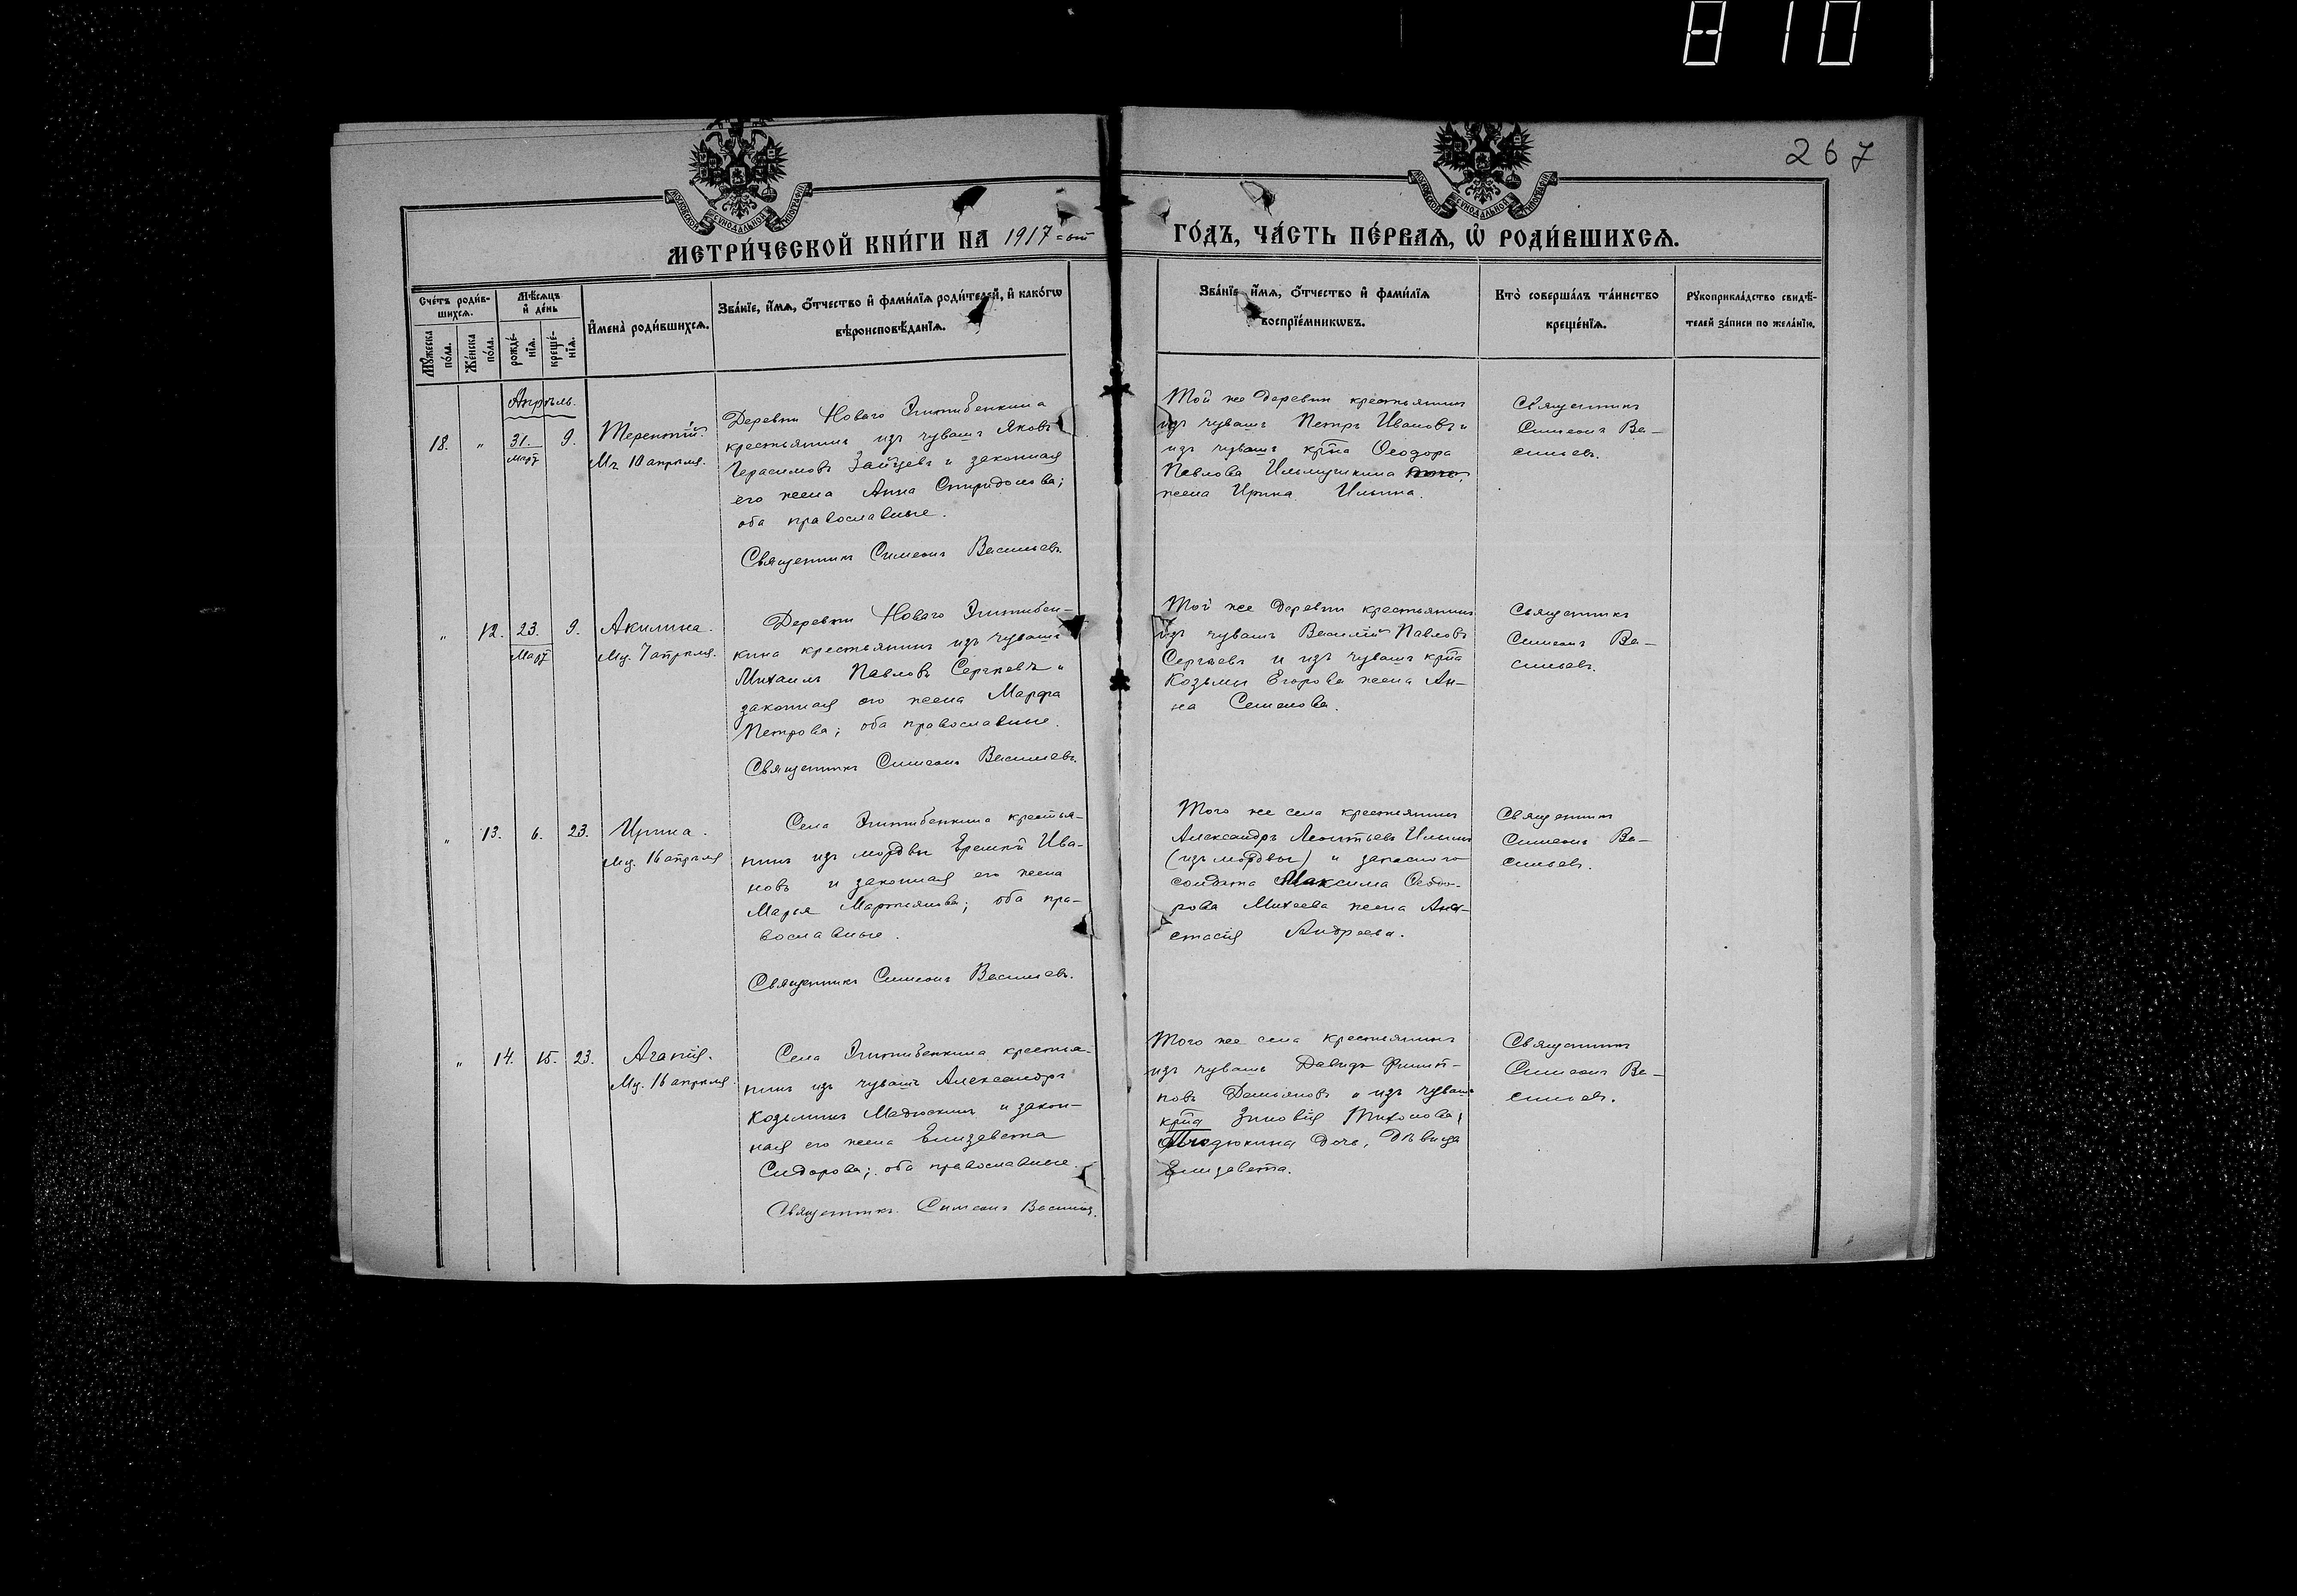 810
267
МОСКОВСКОЙ СУНОДАЛЬНОЙ ТИПОГРАФІИ
МОСКОВСКОЙ СУНОДАЛЬНОЙ ТИПОГРАФІИ
МЕТРИ́ЧЕСКОЙ КНИ́ГИ НА 1917-ый
ГО́ДЪ, ЧА́СТЬ ПЕ́РВАѦ, Ѿ РОДИ́ВШИХСѦ.
Сче́тъ роди́в-
шихсѧ.
Мѣ́сѧцъ
и҆ де́нь
Мꙋ́жеска
по́ла.
Же́нска
по́ла.
рожде́-
нїѧ.
креще́-
нїѧ.
И҆мена̀ роди́вшихсѧ.
Зва́нїе, и҆́мѧ, ѻ҆́тчество и҆ фами́лїѧ роди́телей, и҆ како́гѡ
вѣроисповѣ́данїѧ.
Зва́нїе, и҆́мѧ, ѻ҆́тчество и҆ фами́лїѧ
воспрїе́мникѡвъ.
Кто̀ соверша́лъ та́инство
креще́нїѧ.
Рꙋкоприкла́дство свидѣ́-
телей за́писи по жела́нїю.
Апрѣль.
18.
"
31.
Март
9.
Терентій.
Мч 10 апрѣля.
Деревни Новаго
крестьянинъ изъ чувашъ Яковъ
Герасимовъ Зайцевъ и законная
его жена Анна Спиридонова;
оба православные.
Священникъ Симеонъ Васильевъ
Той же деревни крестьянинъ
изъ чувашъ Петръ Ивановъ и
изъ чувашъ кр-на Ѳеодора
Павлова
жена Ирина Ильина.
Священникъ
Симеонъ Ва-
сильевъ.
"
12.
23.
Март
9.
Акилина.
Мц. 7 апрѣля.
Деревни Новаго
кина крестьянинъ изъ чувашъ
Михаилъ Павловъ Сергѣевъ и
законная его жена Марфа
Петрова; оба православные.
Священникъ Симеонъ Васильевъ.
Той же деревни крестьянинъ
изъ чувашъ Василій Павловъ
Сергѣевъ и изъ чувашъ кр-на
Козьмы Егорова жена Ан-
на Семенова.
Священникъ
Симеонъ Ва-
сильевъ.
"
13.
6.
23.
Ирина.
Мц. 16 апрѣля
Села крестья-
нинъ изъ мордвы Еремѣй Ива-
новъ и законная его жена
Марья Мартьянова; оба пра-
вославные.
Священникъ Симеонъ Васильевъ.
Того же села крестьянинъ
Александръ Леонтьевъ Ильинъ
(изъ мордвы) и запасного
солдата Максима Ѳеодо-
рова Михеева жена Ана-
стасія Андреева.
Священникъ
Симеонъ Ва-
сильевъ.
"
14.
15.
23.
Агапія.
Мц. 16 апрѣля.
Села крестья-
нинъ изъ чувашъ Александръ
Козьминъ и закон-
ная его жена Елизавета
Сидорова; оба православные.
Священникъ Симеонъ
Того же села крестьянинъ
изъ чувашъ Давидъ Филип-
повъ Демьяновъ и изъ чувашъ
кр-на Зиновія Тихонова
дочь, дѣвица
Елизавета.
Священникъ
Симеонъ Ва-
сильевъ.